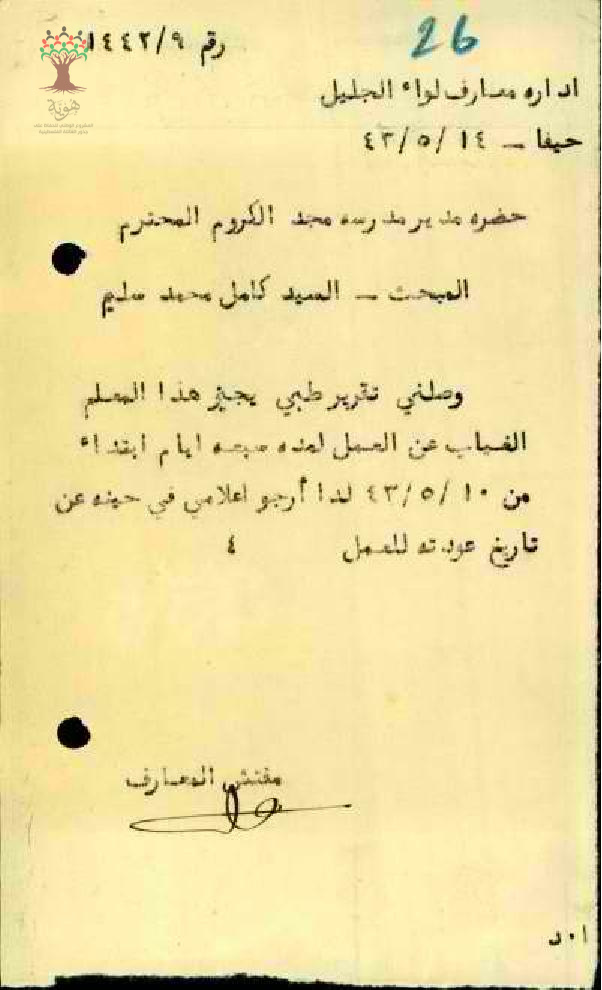 26
رقم ١٤٤٢/٩
هوية
اداره معارف لواء الجليل
حيفا – ١٤ /٤٣/٥
حضره مدير مدرسه مجد الكروم المحترم
المبحث – السيد كامل محمد سليم
وصلني تقرير طبي يجيز هذا المعلم
الغياب عن العمل لمده سبعه ايام ابتداء
من ١٠ /٤٣/٥ لذا أرجو اعلامي في حينه عن
تاريخ عودته للعمل ٤
مفتش المعارف
ا٠د